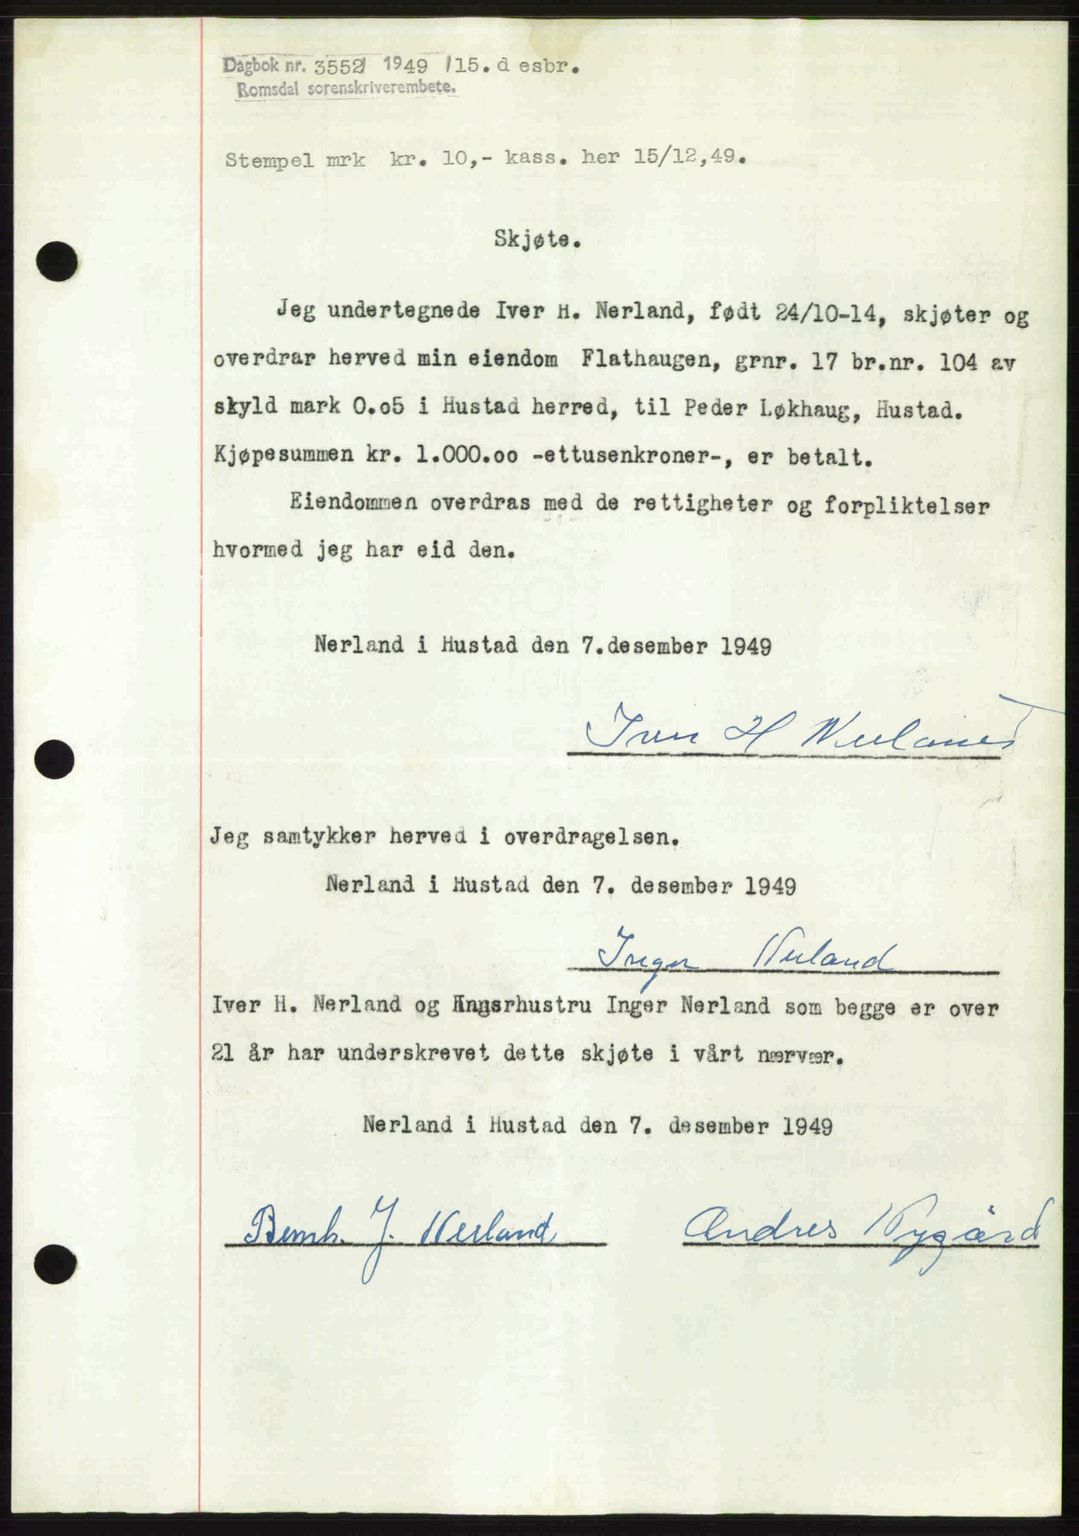 Dagbok nr. 3552 1949 /15. d esbr.
Romsdal sorenskriverembete.
Stempel mrk kr. 10,- kass. her 15/12,49.
Skjøte.
Jeg undertegnede Iver H. Nerland, født 24/10-14, skjøter og
overdrar herved min eiendom Flathaugen, grnr. 17 br.nr. 104 av
skyld mark 0.05 i Hustad herred, til Peder Løkhaug, Hustad.
Kjøpesummen kr. 1.000.oo -ettusenkroner-, er betalt.
Eiendommen overdras med de rettigheter og forpliktelser
hvormed jeg har eid den.
Nerland i Hustad den 7.desember 1949
Iver H Nerland
Jeg samtykker herved i overdragelsen.
Nerland i Hustad den 7. desember 1949
Inger Nerland
Iver H. Nerland og hustru Inger Nerland som begge er over
21 år har underskrevet dette skjøte i vårt nærvær.
Nerland i Hustad den 7. desember 1949
Bernh. J. Nerland Andres Nygård